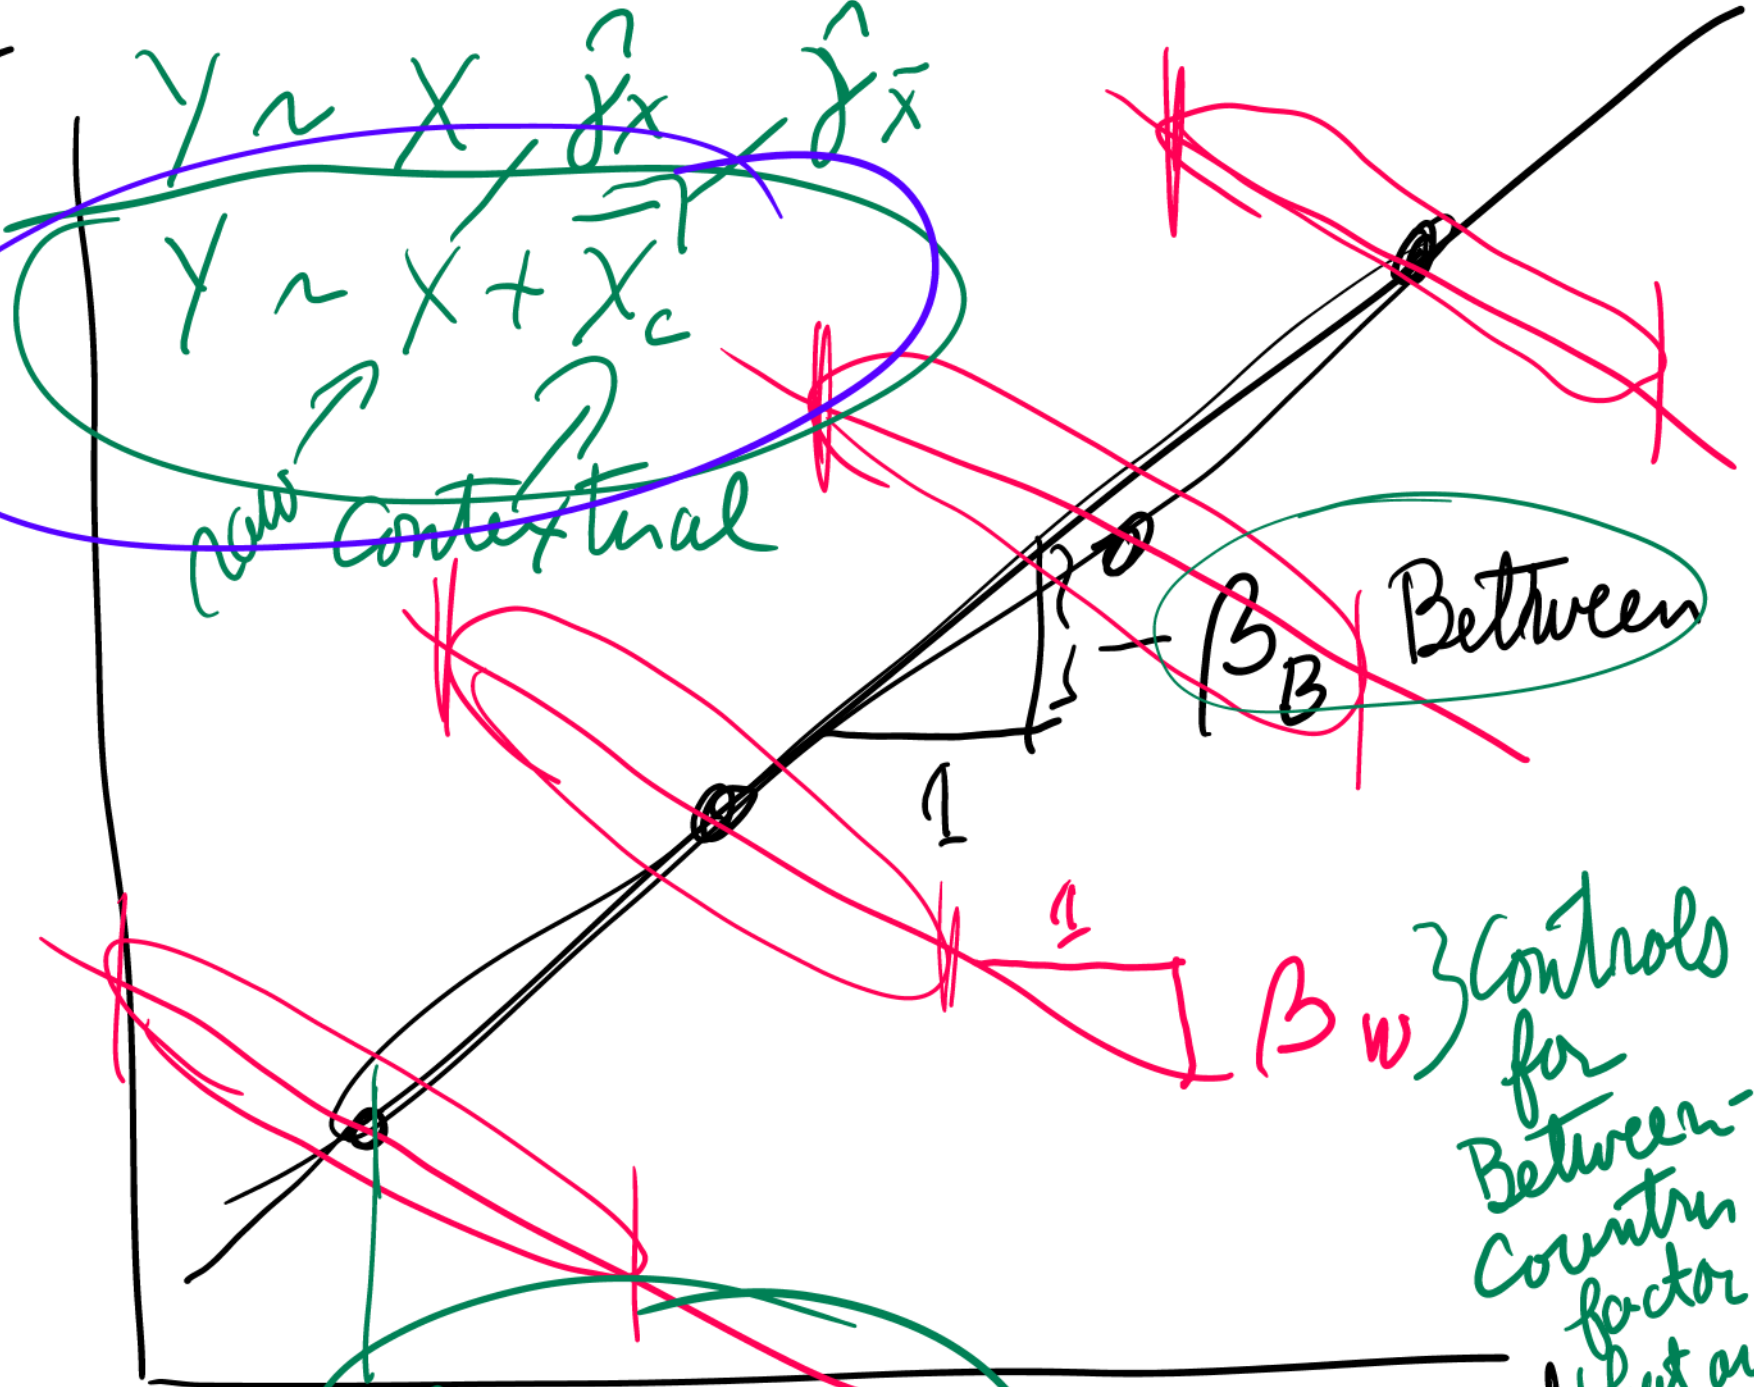 Y ~ X γ̂x γ̂x̄
Y ~ X + X̄c
raw contextual
βB Between
1
1
βW } Controls
for
Between-
Country
factor